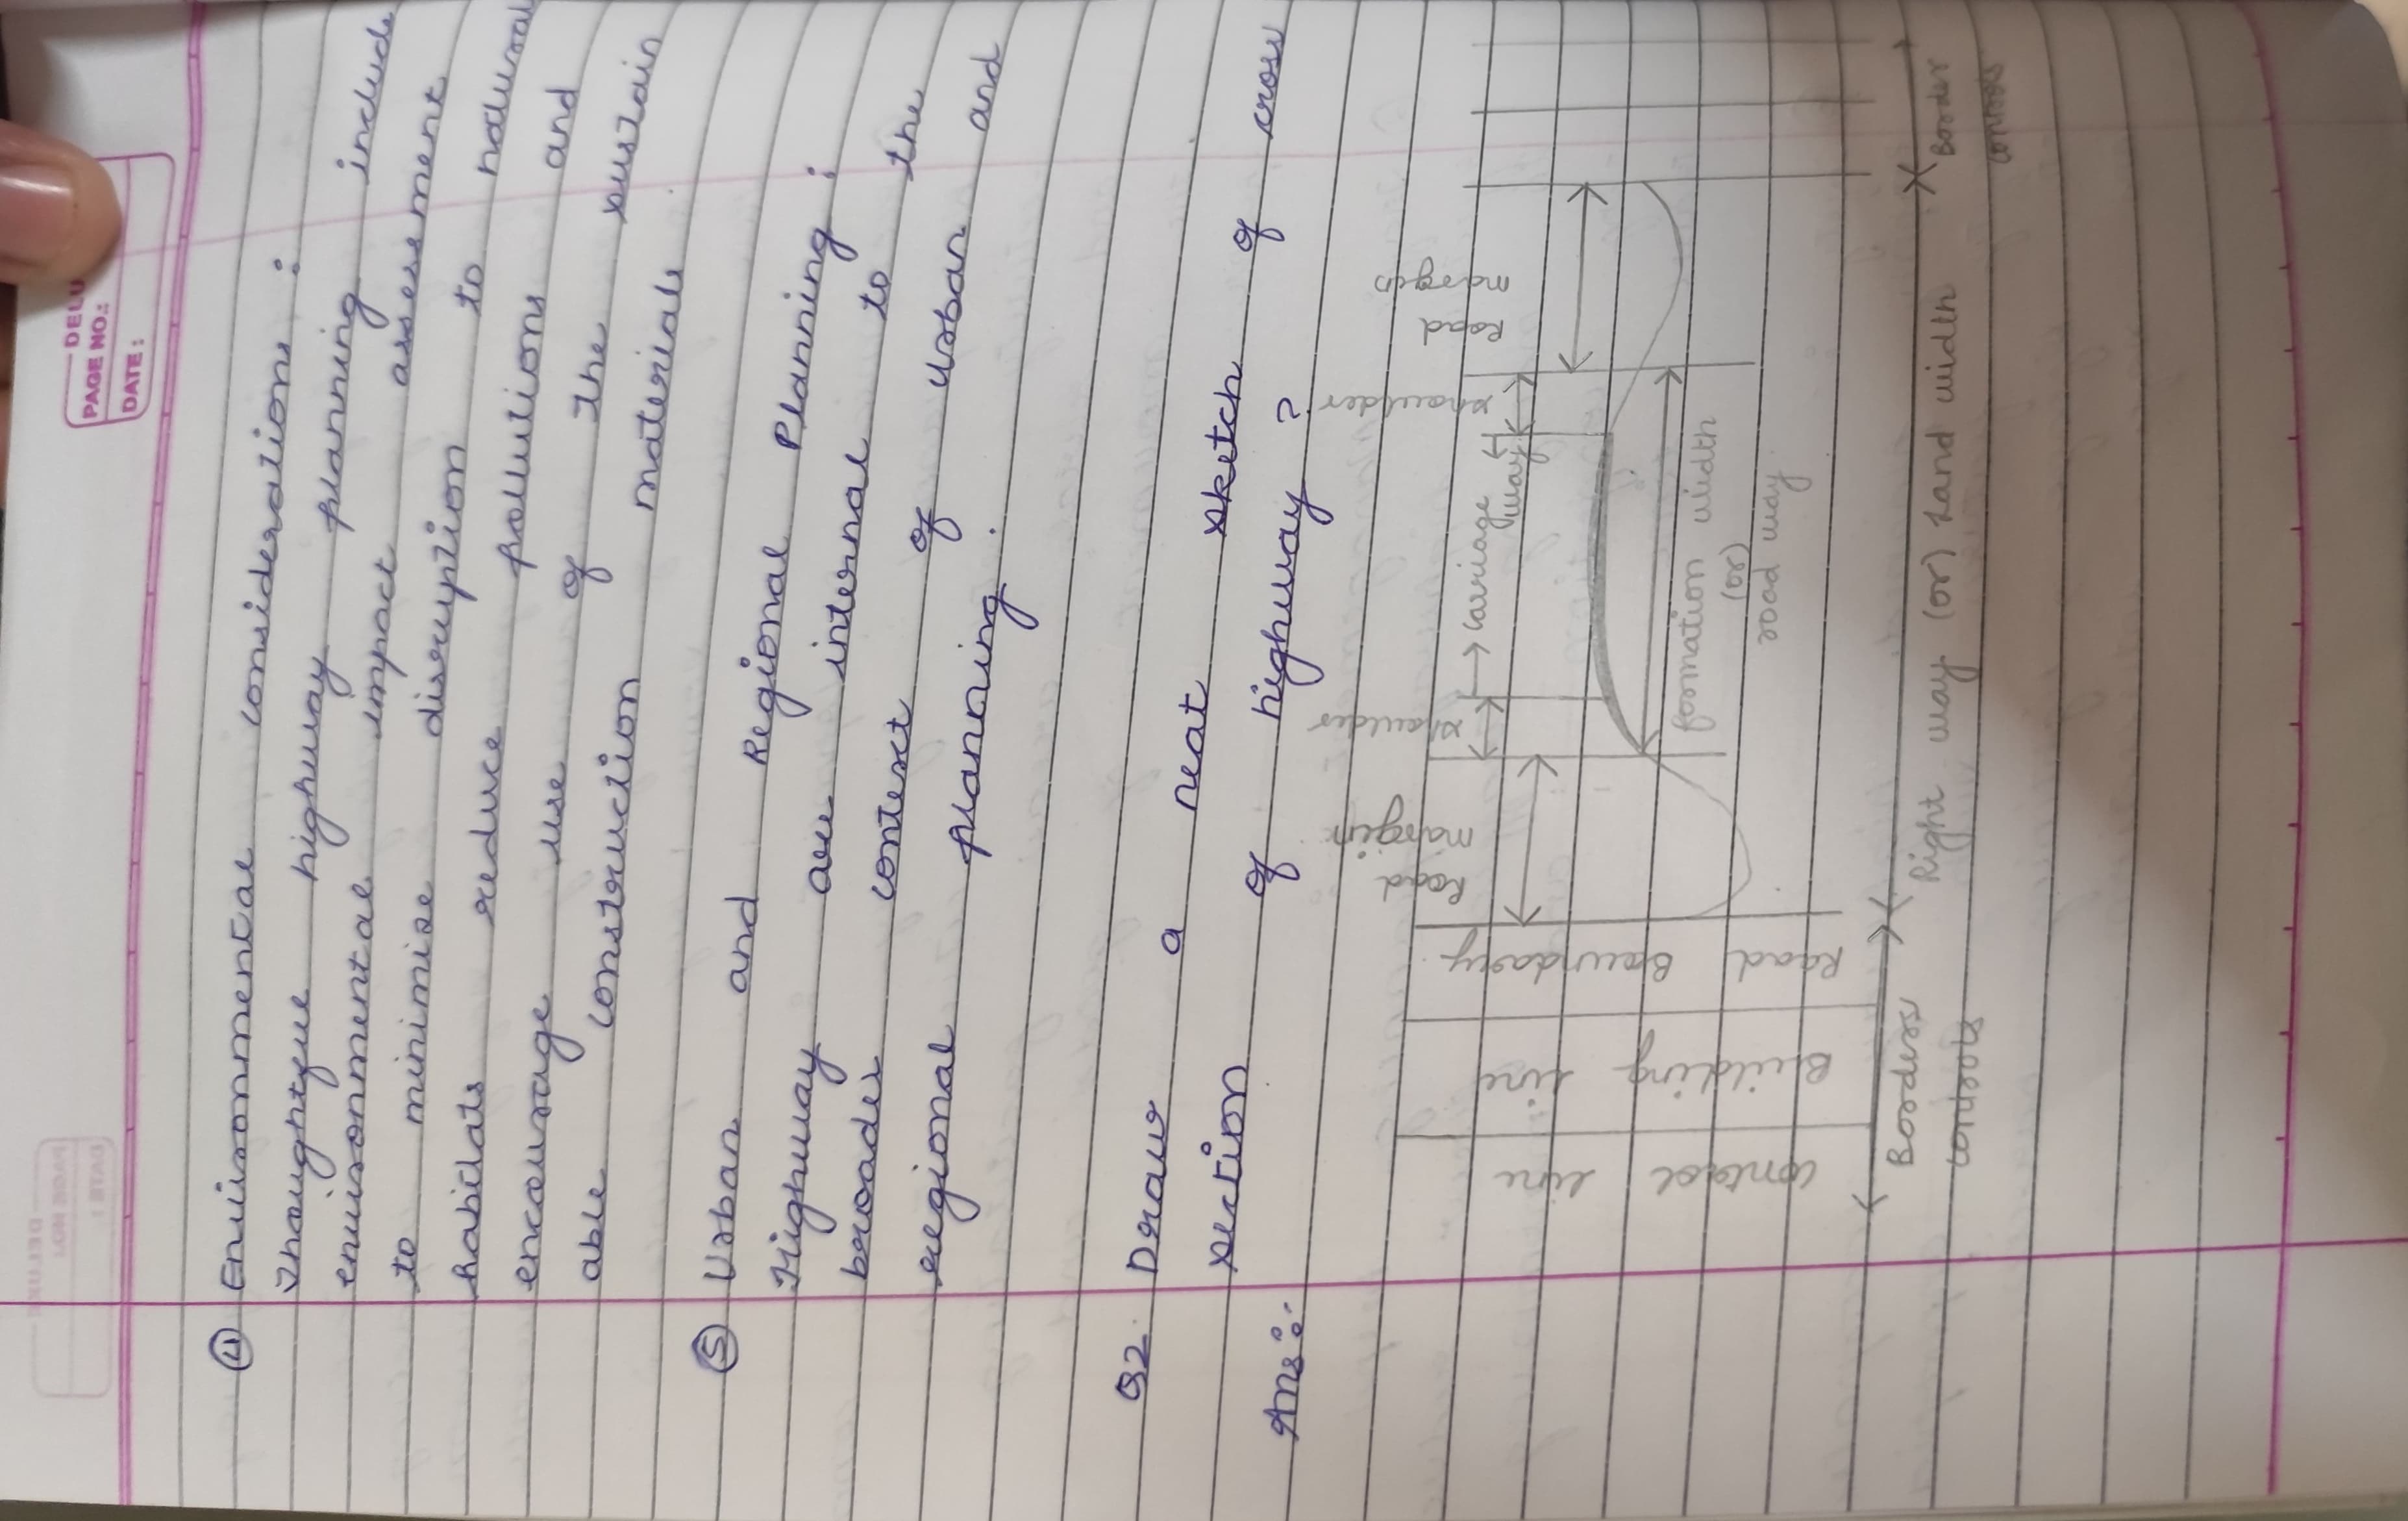 DELU
PAGE NO.:
DATE :
④ Environmental considerations :
Thoughtful highway planning include
environmental impact assessment
to minimize disruption to natural
habitats reduce pollutions and
encourage use of the sustain
able construction materials
⑤ Urban and Regional Planning :
Highway are internal to the
broader context of urban and
regional planning .
Q2. Draw a neat sketch of cross
section of highway ?
Ans :-
control line
Building line
Road Boundary
Road margin
shoulder
carriage way
shoulder
Road margin
formation width
(or)
road way
Borders controls
Right way (or) Land width
Border controls